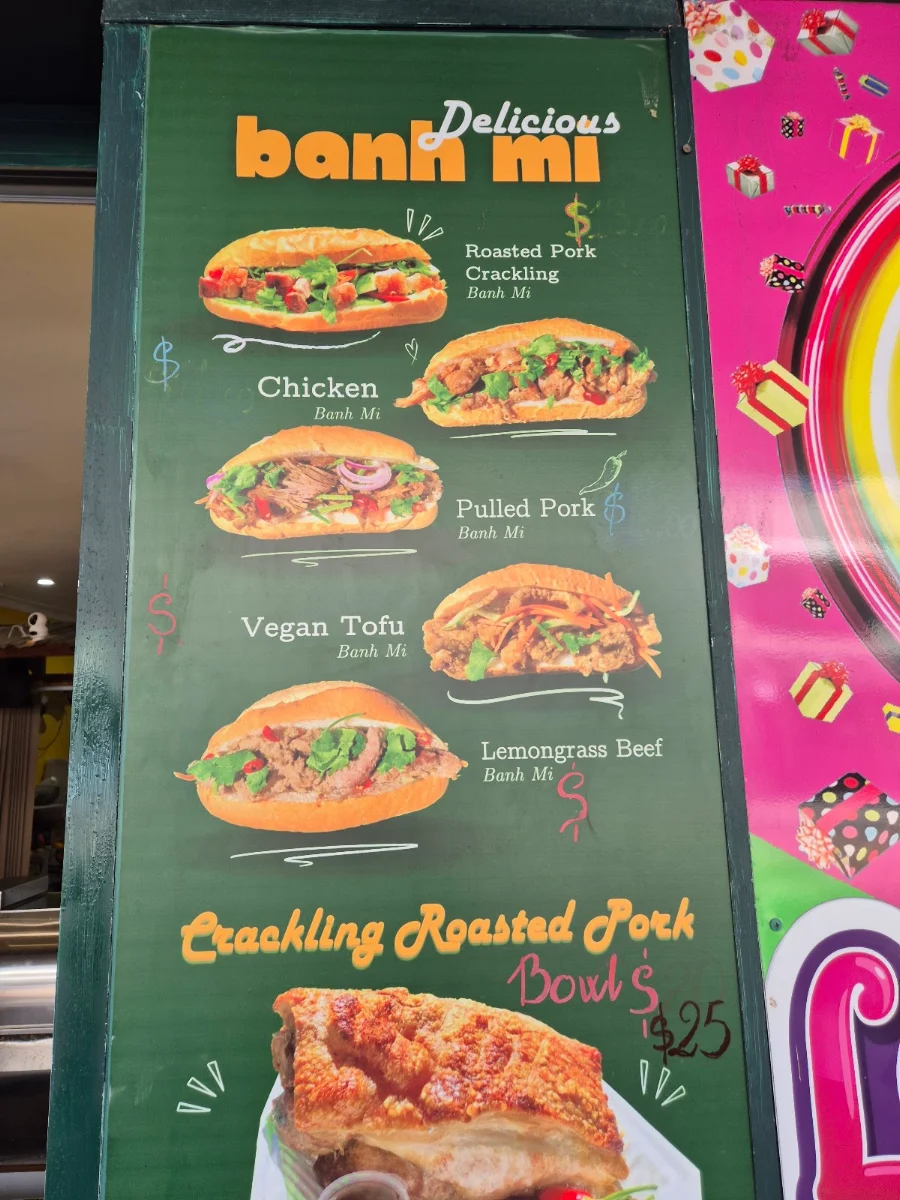 Delicious
banh mi
$
Roasted Pork
Crackling
Banh Mi
$
Chicken
Banh Mi
Pulled Pork $
Banh Mi
$
Vegan Tofu
Banh Mi
Lemongrass Beef
Banh Mi
$
Crackling Roasted Pork
Bowl $
$25